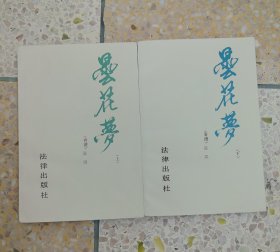 曇花夢
(上)
法律出版社
曇花夢
(下)
法律出版社